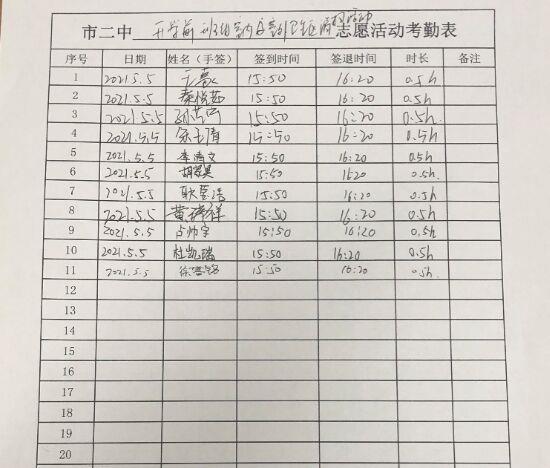 市二中开学前班级室内及室外卫生区清扫活动志愿活动考勤表
序号 日期 姓名（手签） 签到时间 签退时间 时长 备注
1 2021.5.5 15:50 16:20 0.5h
2 2021.5.5 秦悦茹 15:50 16:20 0.5h
3 2021.5.5 15:50 16:20 0.5h
4 2021.5.5 15:50 16:20 0.5h
5 2021.5.5 李清文 15:50 16:20 0.5h
6 2021.5.5 胡家昊 15:50 16:20 0.5h
7 2021.5.5 15:50 16:20 0.5h
8 2021.5.5 黄祥 15:50 16:20 0.5h
9 2021.5.5 占帅宇 15:50 16:20 0.5h
10 2021.5.5 杜凯瑞 15:50 16:20 0.5h
11 2021.5.5 徐 15:50 16:20 0.5h
12
13
14
15
16
17
18
19
20